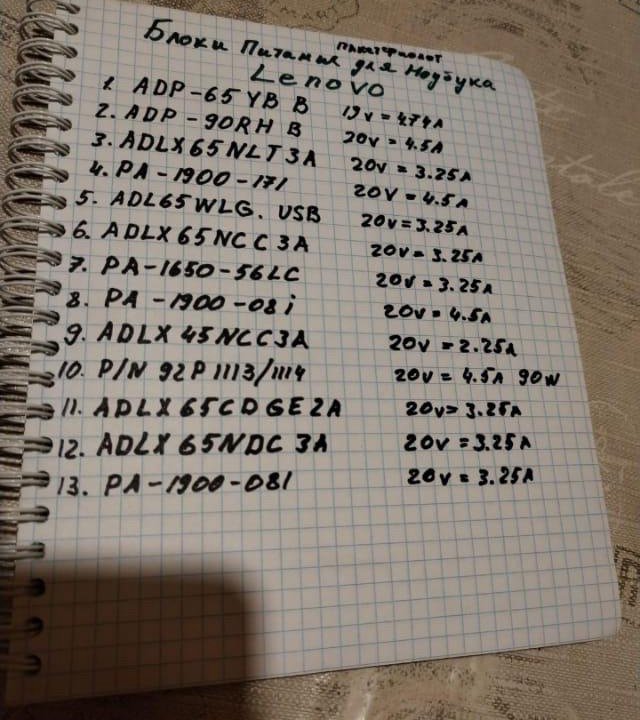 Блоки Питания для Ноутбука
Lenovo
1. ADP-65YB B 19v = 4.74A
2. ADP-90RH B 20v = 4.5A
3. ADLX65NLT3A 20v = 3.25A
4. PA-1900-171 20v = 4.5A
5. ADL65WLG. USB 20v = 3.25A
6. ADLX65NCC3A 20v = 3.25A
7. PA-1650-56LC 20v = 3.25A
8. PA-1900-08i 20v = 4.5A
9. ADLX45NCC3A 20v = 2.25A
10. P/N 92P1113/1114 20v = 4.5A 90W
11. ADLX65CDGE2A 20v= 3.25A
12. ADLX65NDC 3A 20v = 3.25A
13. PA-1900-081 20v = 3.25A